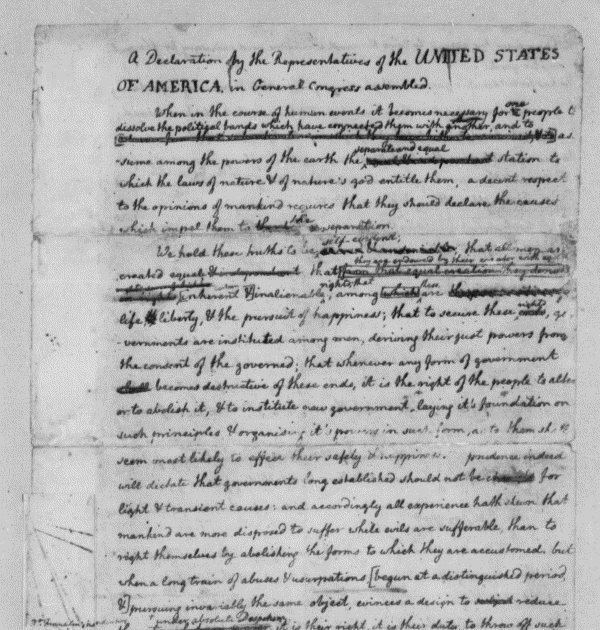 A Declaration by the Representatives of the UNITED STATES
OF AMERICA, in General Congress assembled.
When in the course of human events it becomes necessary for one people to
dissolve the political bands which have connected them with another, and to
as
separate and equal
-sume among the powers of the earth the station to
which the laws of nature & of nature's god entitle them, a decent respect
to the opinions of mankind requires that they should declare the causes
which impel them to the separation.
self-evident;
We hold these truths to be that all men are
they are endowed by their creator with
created equal & independent that [from that equal creation they derive
rights; that these
inherent & inalienable, among [which] are
rights
life & liberty, & the pursuit of happiness; that to secure these ends, go
-vernments are instituted among men, deriving their just powers from
the consent of the governed; that whenever any form of government
shall becomes destructive of these ends, it is the right of the people to alter
or to abolish it, & to institute new government, laying it's foundation on
such principles & organising it's powers in such form, as to them sh
seem most likely to effect their safety & happiness. prudence indeed
will dictate that governments long established should not be changed for
light & transient causes: and accordingly all experience hath shewn that
mankind are more disposed to suffer while evils are sufferable, than to
right themselves by abolishing the forms to which they are accustomed. but
when a long train of abuses & usurpations [begun at a distinguished period,
&] pursuing invariably the same object, evinces a design to reduce
under absolute Despotism
it is their right, it is their duty, to throw off such